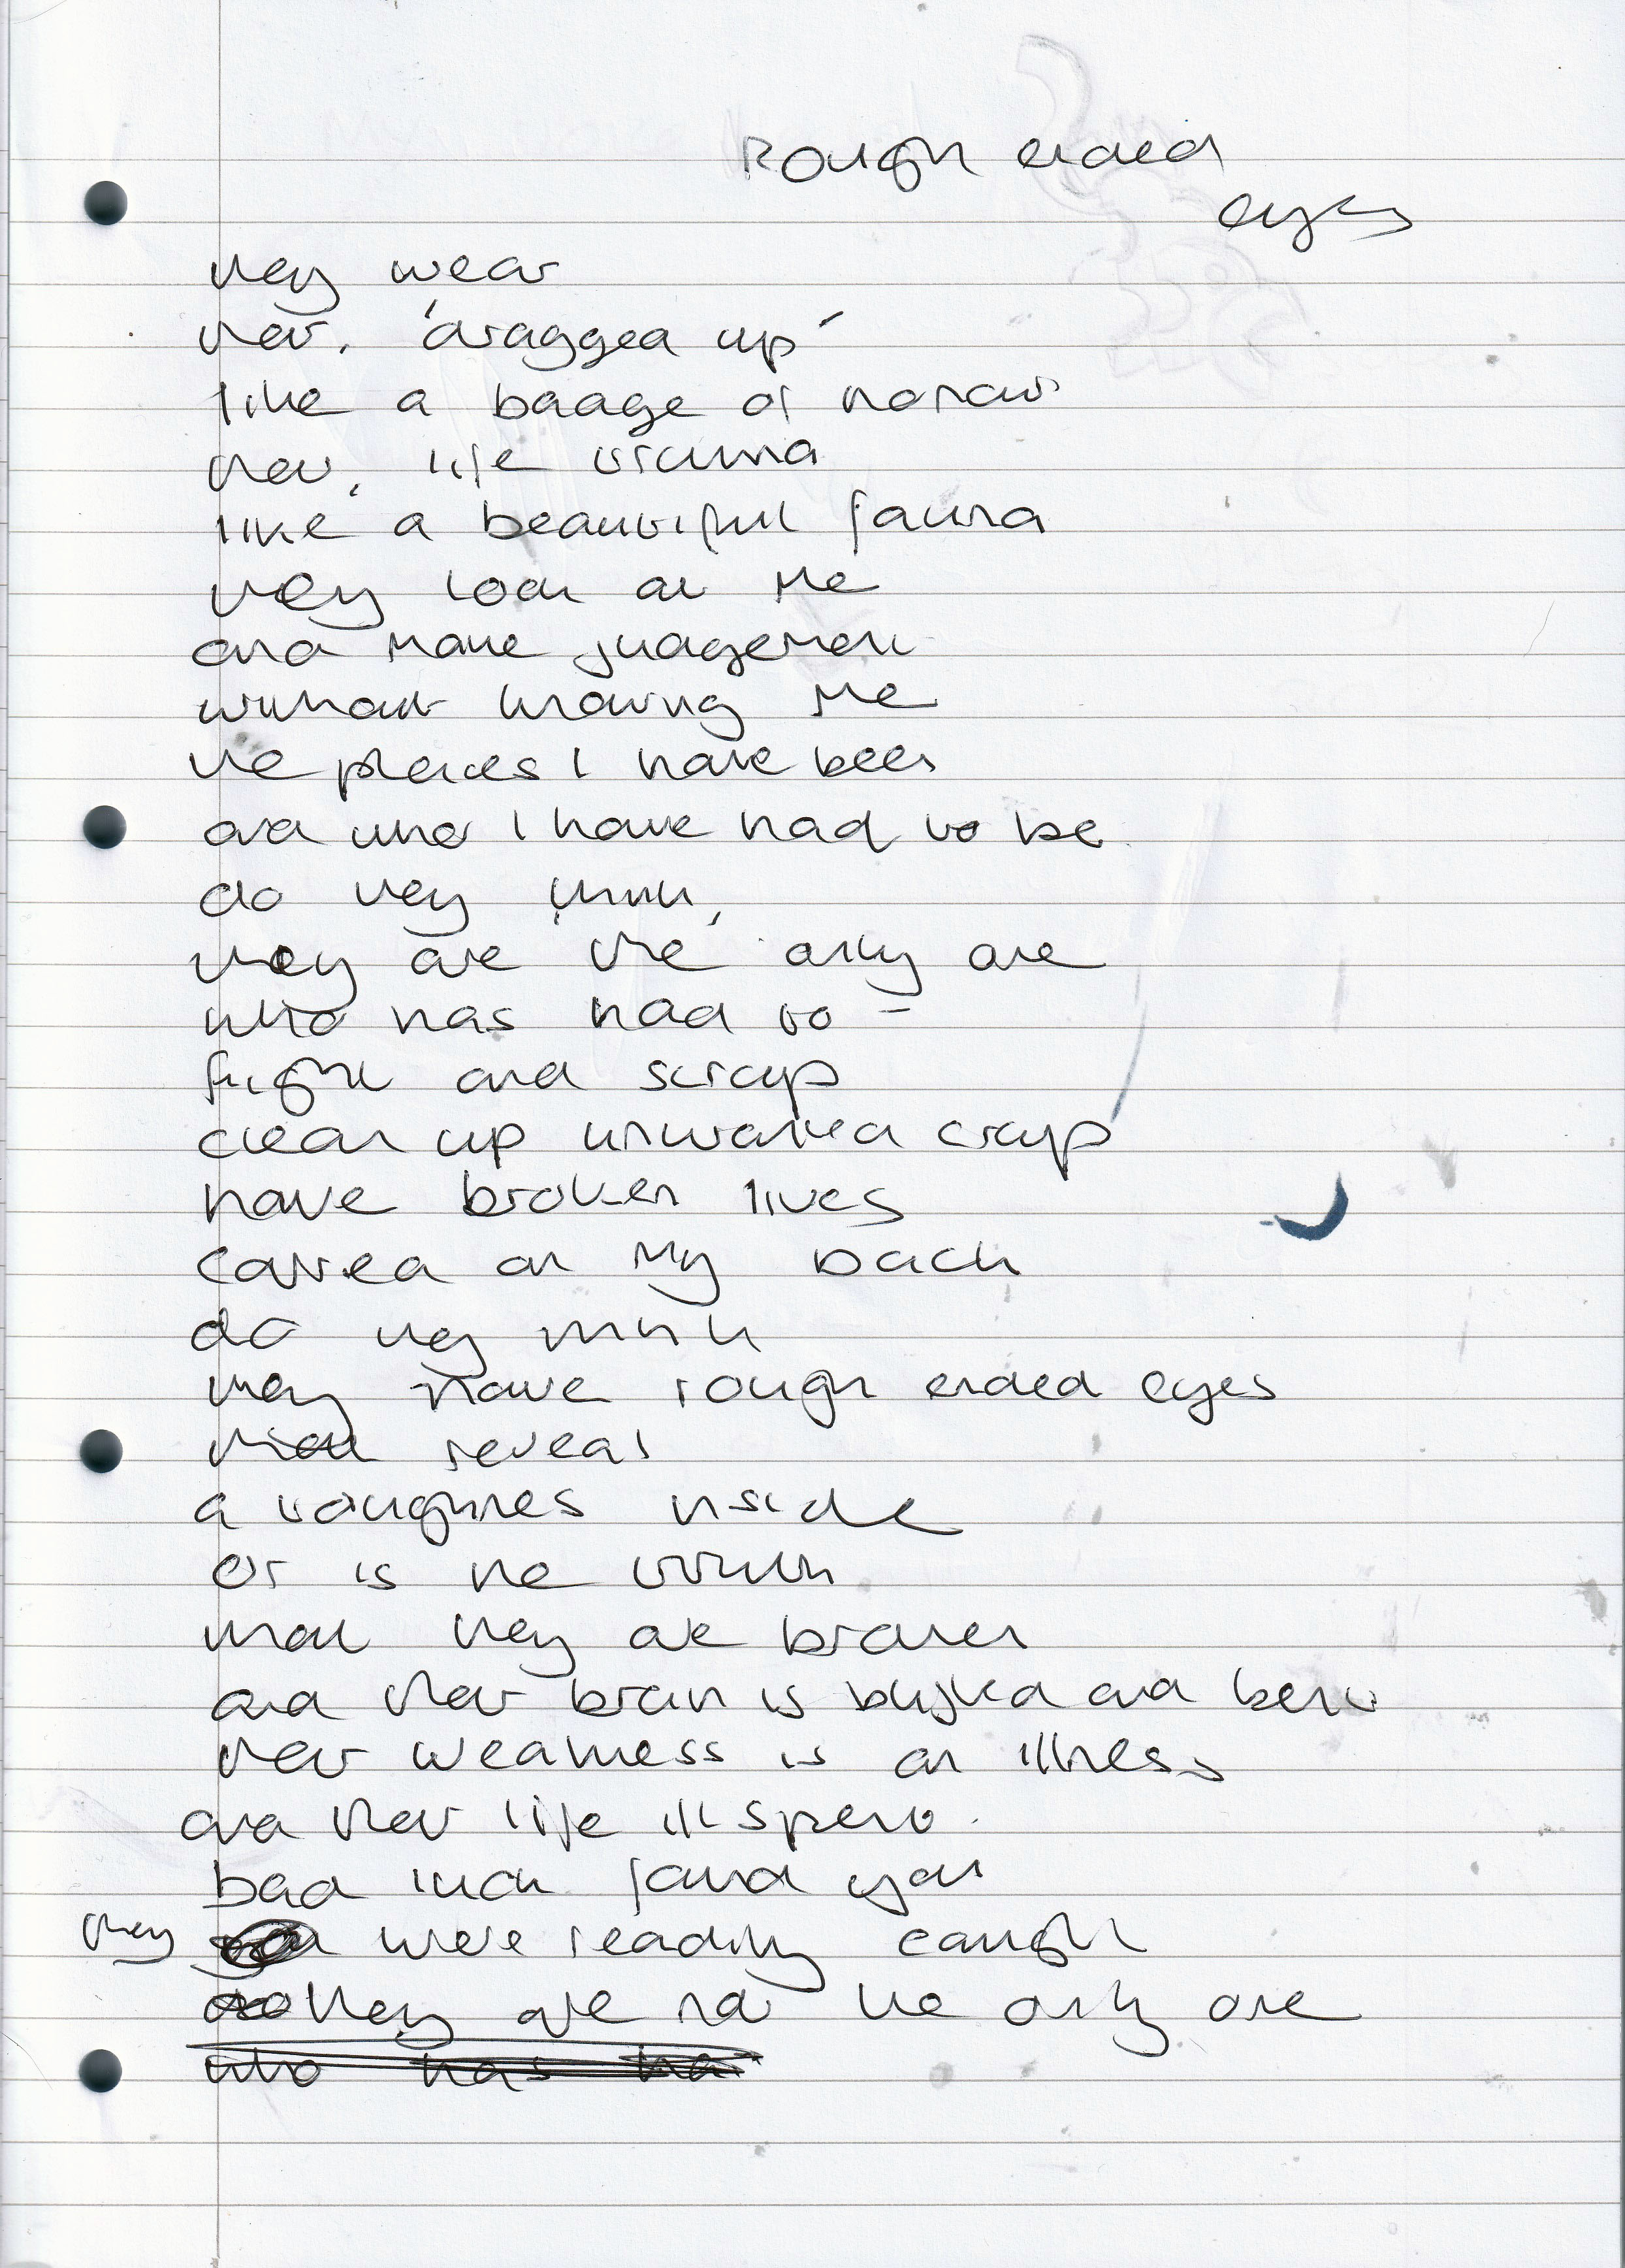 Rough ended
eyes
they wear
their, 'dragged up'
like a badge of honour
their, life victima
like a beautiful fauna
they look at me
and make judgement
without knowing me
the places I have been
and who I have had to be
do they think,
they are the only one
who has had to -
fight and scrap
clean up unwanted crap
have broken lives
carved on my back
do they think
they have rough ended eyes
that reveal
a roughness inside
or is the truth
that they are broken
and their brain is and bent
their weakness is an illness
and their life ill spent.
bad luck found you
they were readily caught
they are not the only one
who has ha